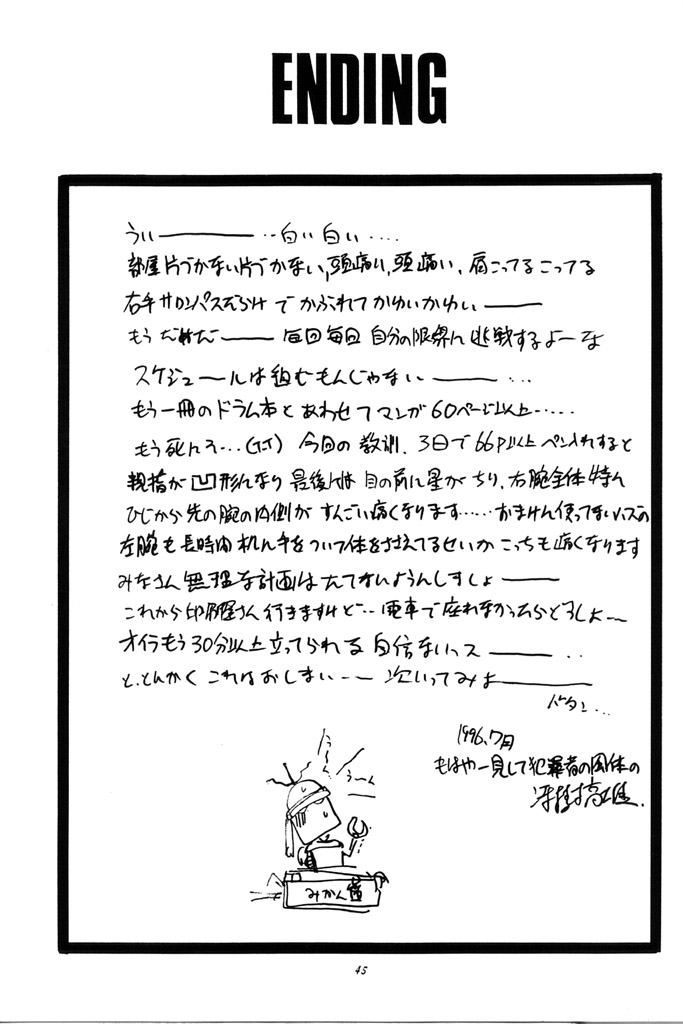 ENDING
うぃ――― ‥白い白い‥‥
部屋片づかない片づかない,頭痛い,頭痛い,肩こってるこってる
右手サロンパスだらけでかぶれてかゆいかゆい―――
もうだめだ――― 毎回毎回自分の限界に挑戦するよーな
スケジュールは組むもんじゃない――― …
もう一冊のドラム本とあわせてマンガ60ページ以上……
もう死んそ…(T-T) 今回の教訓.3日で66P以上ペン入れすると
親指が凹形になり最後には目の前に星がちり、右腕全体特に
ひじから先の腕の内側がすんごい痛くなります……おまけに使ってないハズの
左腕も長時間机に手をついて体をささえてるせいかこっちも痛くなります
みなさん無理な計画はたてないようにしましょ―――
これから印刷屋さん行きますけど…電車で座れなかったらどうしよ~~
オイラもう30分以上立ってられる自信ないっス――― ‥
と、とにかくこれはおしまい―― 次いってみよ―――
バタン…
1996.7月
もはや一見して犯罪者の風体の
冴樹高雄.
うーん
うーん
みかん箱
45